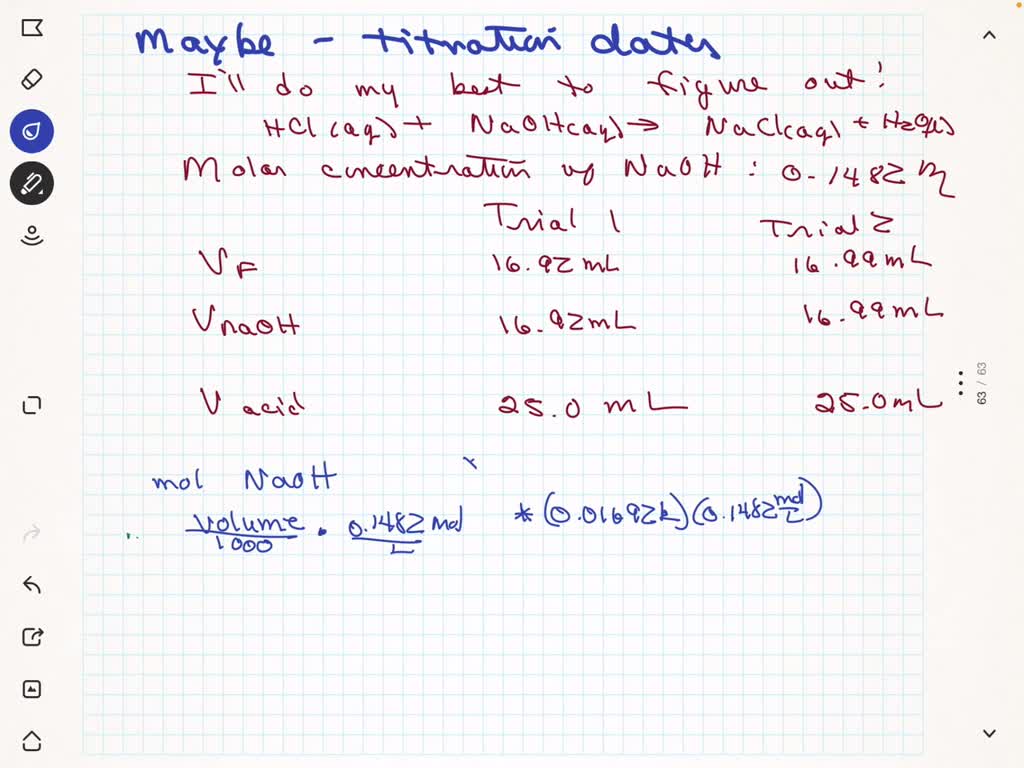 Maybe - titration dates
I'll do my best to figure out!
HCl(aq) + NaOH(aq) → NaCl(aq) + H2O(l)
Molar concentration of NaOH : 0.1482 M
Trial 1 Trial 2
VF 16.92 mL 16.99 mL
VNaOH 16.92 mL 16.99 mL
V acid 25.0 mL 25.0 mL
63 / 63
mol NaOH
volume/1000 • 0.1482 mol/L * (0.01692L)(0.1482 mol/L)